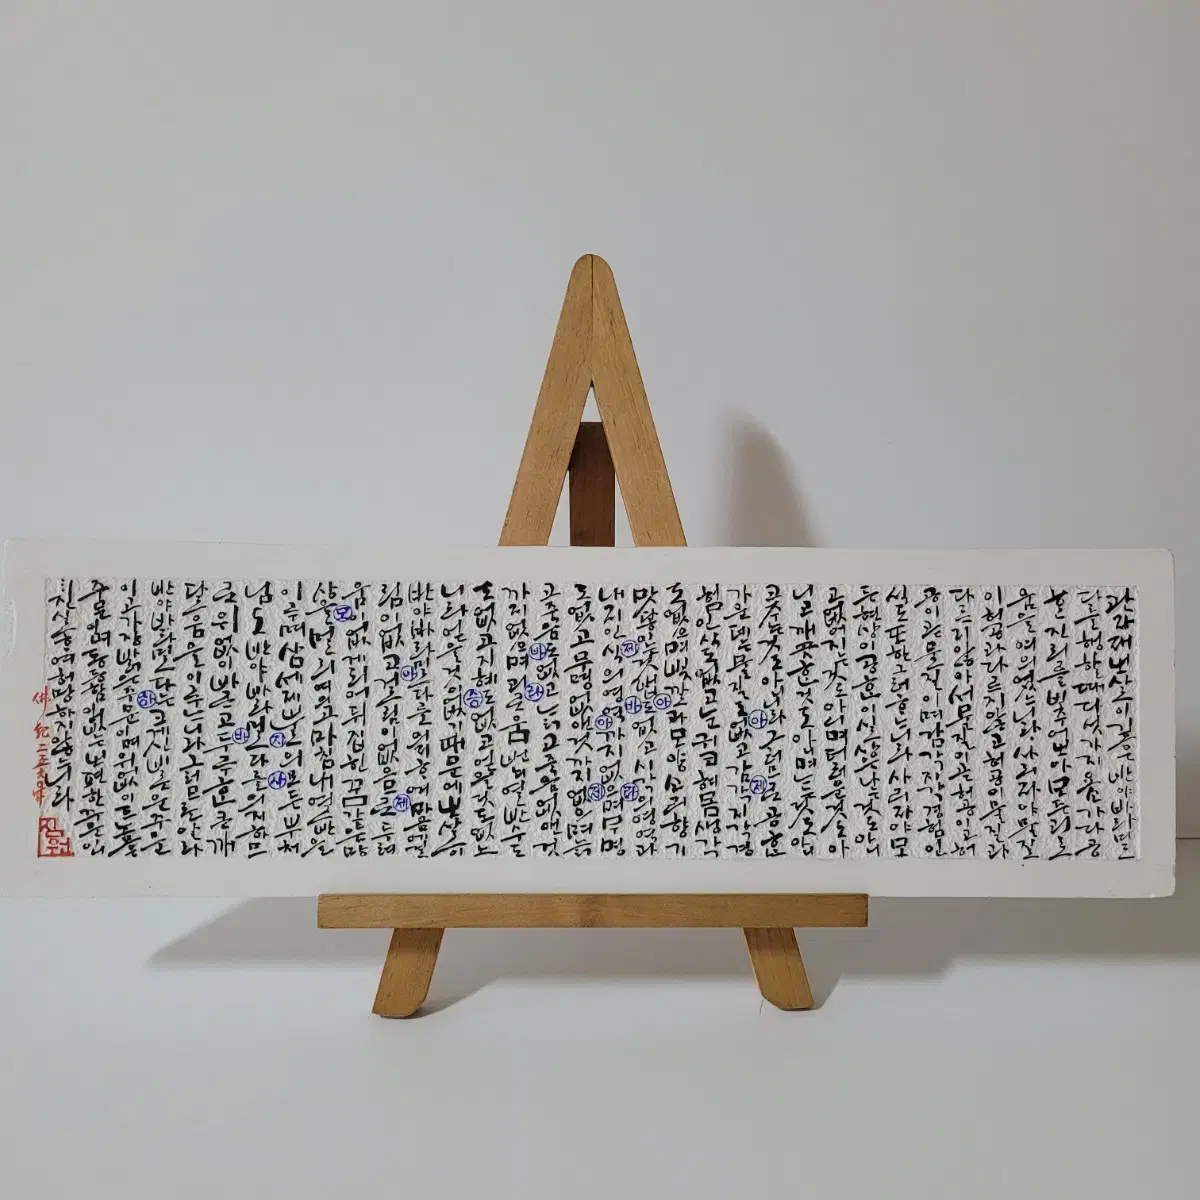 관자재보살이깊은반야바라밀
다를행할때다섯가지요소가다공
한진리를비추어보아모든괴로
움을여의였느니라사리자야물질
이허공과다르지않고허공이물질과
다르지않아서물질이곧허공이고허
공이곧물질이며감각지각경험인
식도또한그러하느니라사리자야모
든현상이공한이실상은나는것도아니
고없어지는것도아니며더러운것도아
니고깨끗한것도아니며느는것도아니
고주는것도아니니라그러므로공한
가운데는물질도없고감각지각경
험인식도없고눈귀코혀몸생각
도없으며빛깔과모양소리향기
맛 것법도없고시각의영역과
내지인식의영역까지없으며무명
도없고무명없앤것까지없으며늙
고죽음도없고늙고죽음없앤것
까지없으며괴로움번뇌열반수도
도없고지혜도없고얻을것도없느
니라얻을것이없기때문에보살이
반야바라밀다를의지하여마음걸
림이없고걸림이없으므로두려
움이없게되며뒤집힌꿈같은망
상을멀리여의고마침내열반을
이루며삼세 의모든부처
님도반야바라밀다를의지하므
로위없이바르고두루한큰깨
달음을이루느니라그러므로알라
반야바라밀다는크게신비로운주문
이고가장밝은주문이며위없이높은
주문이며동등함이없는 주문인
진실하여허망하지않느니라
佛紀二五六